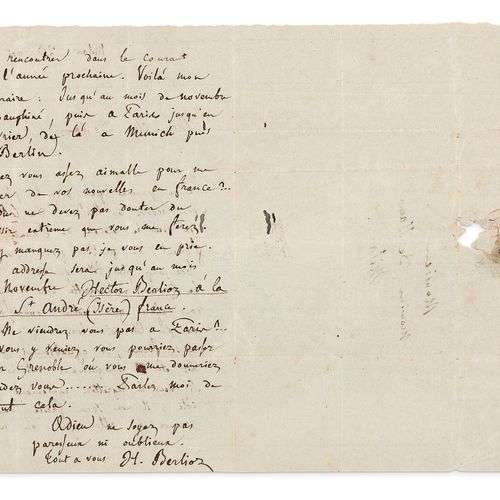 rencontrer dans le courant
l'année prochaine. Voilà mon
raire : Jusqu'au mois de novembre
auphiné, puis a Paris jusqu'en
vrier, de là a Munich puis
Berlin.
ez vous assez aimable pour me
er de vos nouvelles en france ?..
ne devez pas douter du
extreme que vous me ferez
manquez pas je vous en prie.
addresse sera jusqu'au mois
Novembre Hector Berlioz à la
St André (Isère) france.
Ne viendrez vous pas a Paris ?..
vous y veniez vous pourriez passer
r Grenoble ou vous me donneriez
dez vous..... Parlez moi de
out cela.
Adieu ne soyez pas
paresseux ni oublieux.
tout a vous H. Berlioz